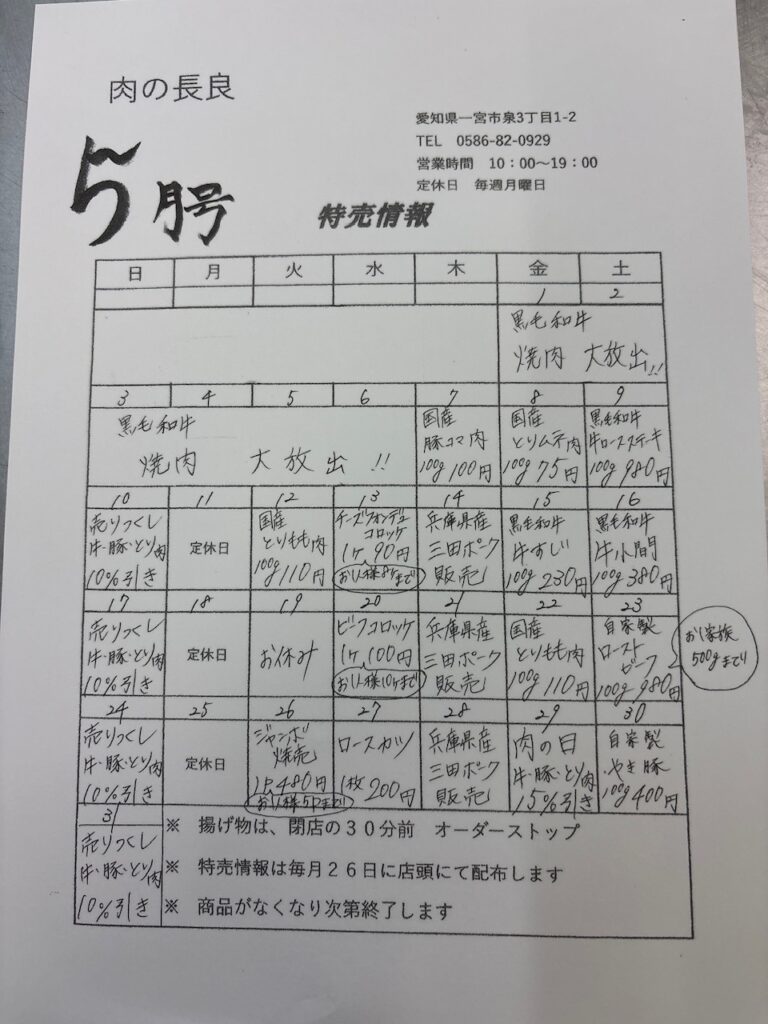 肉の長良
愛知県一宮市泉3丁目1-2
TEL 0586-82-0929
営業時間 10：00～19：00
定休日 毎週月曜日
5月号
特売情報
日 月 火 水 木 金 土
1 2
黒毛和牛
焼肉 大放出!!
3 4 5 6 7 8 9
黒毛和牛
焼肉 大放出!!
国産
豚コマ肉
100g 100円
国産
とりムネ肉
100g 75円
黒毛和牛
牛ロースステーキ
100g 980円
10 11 12 13 14 15 16
売りつくし
牛・豚・とり肉
10%引き
定休日
国産
とりもも肉
100g 110円
チーズフォンデュ
コロッケ
1ケ 90円
お1人様8ケまで
兵庫県産
三田ポーク
販売
黒毛和牛
牛すじ
100g 230円
黒毛和牛
牛小間
100g 380円
17 18 19 20 21 22 23
売りつくし
牛・豚・とり肉
10%引き
定休日
お休み
ビーフコロッケ
1ケ 100円
お1人様10ケまで
兵庫県産
三田ポーク
販売
国産
とりもも肉
100g 110円
自家製
ロースト
ビーフ
100g 980円
お1家族
500gまで
24 25 26 27 28 29 30
売りつくし
牛・豚・とり肉
10%引き
定休日
ジャンボ
焼売
1P 480円
お1人様5Pまで
ロースカツ
1枚 200円
兵庫県産
三田ポーク
販売
肉の日
牛・豚・とり肉
15%引き
自家製
やき豚
100g 400円
31
売りつくし
牛・豚・とり肉
10%引き
※ 揚げ物は、閉店の３０分前 オーダーストップ
※ 特売情報は毎月２６日に店頭にて配布します
※ 商品がなくなり次第終了します